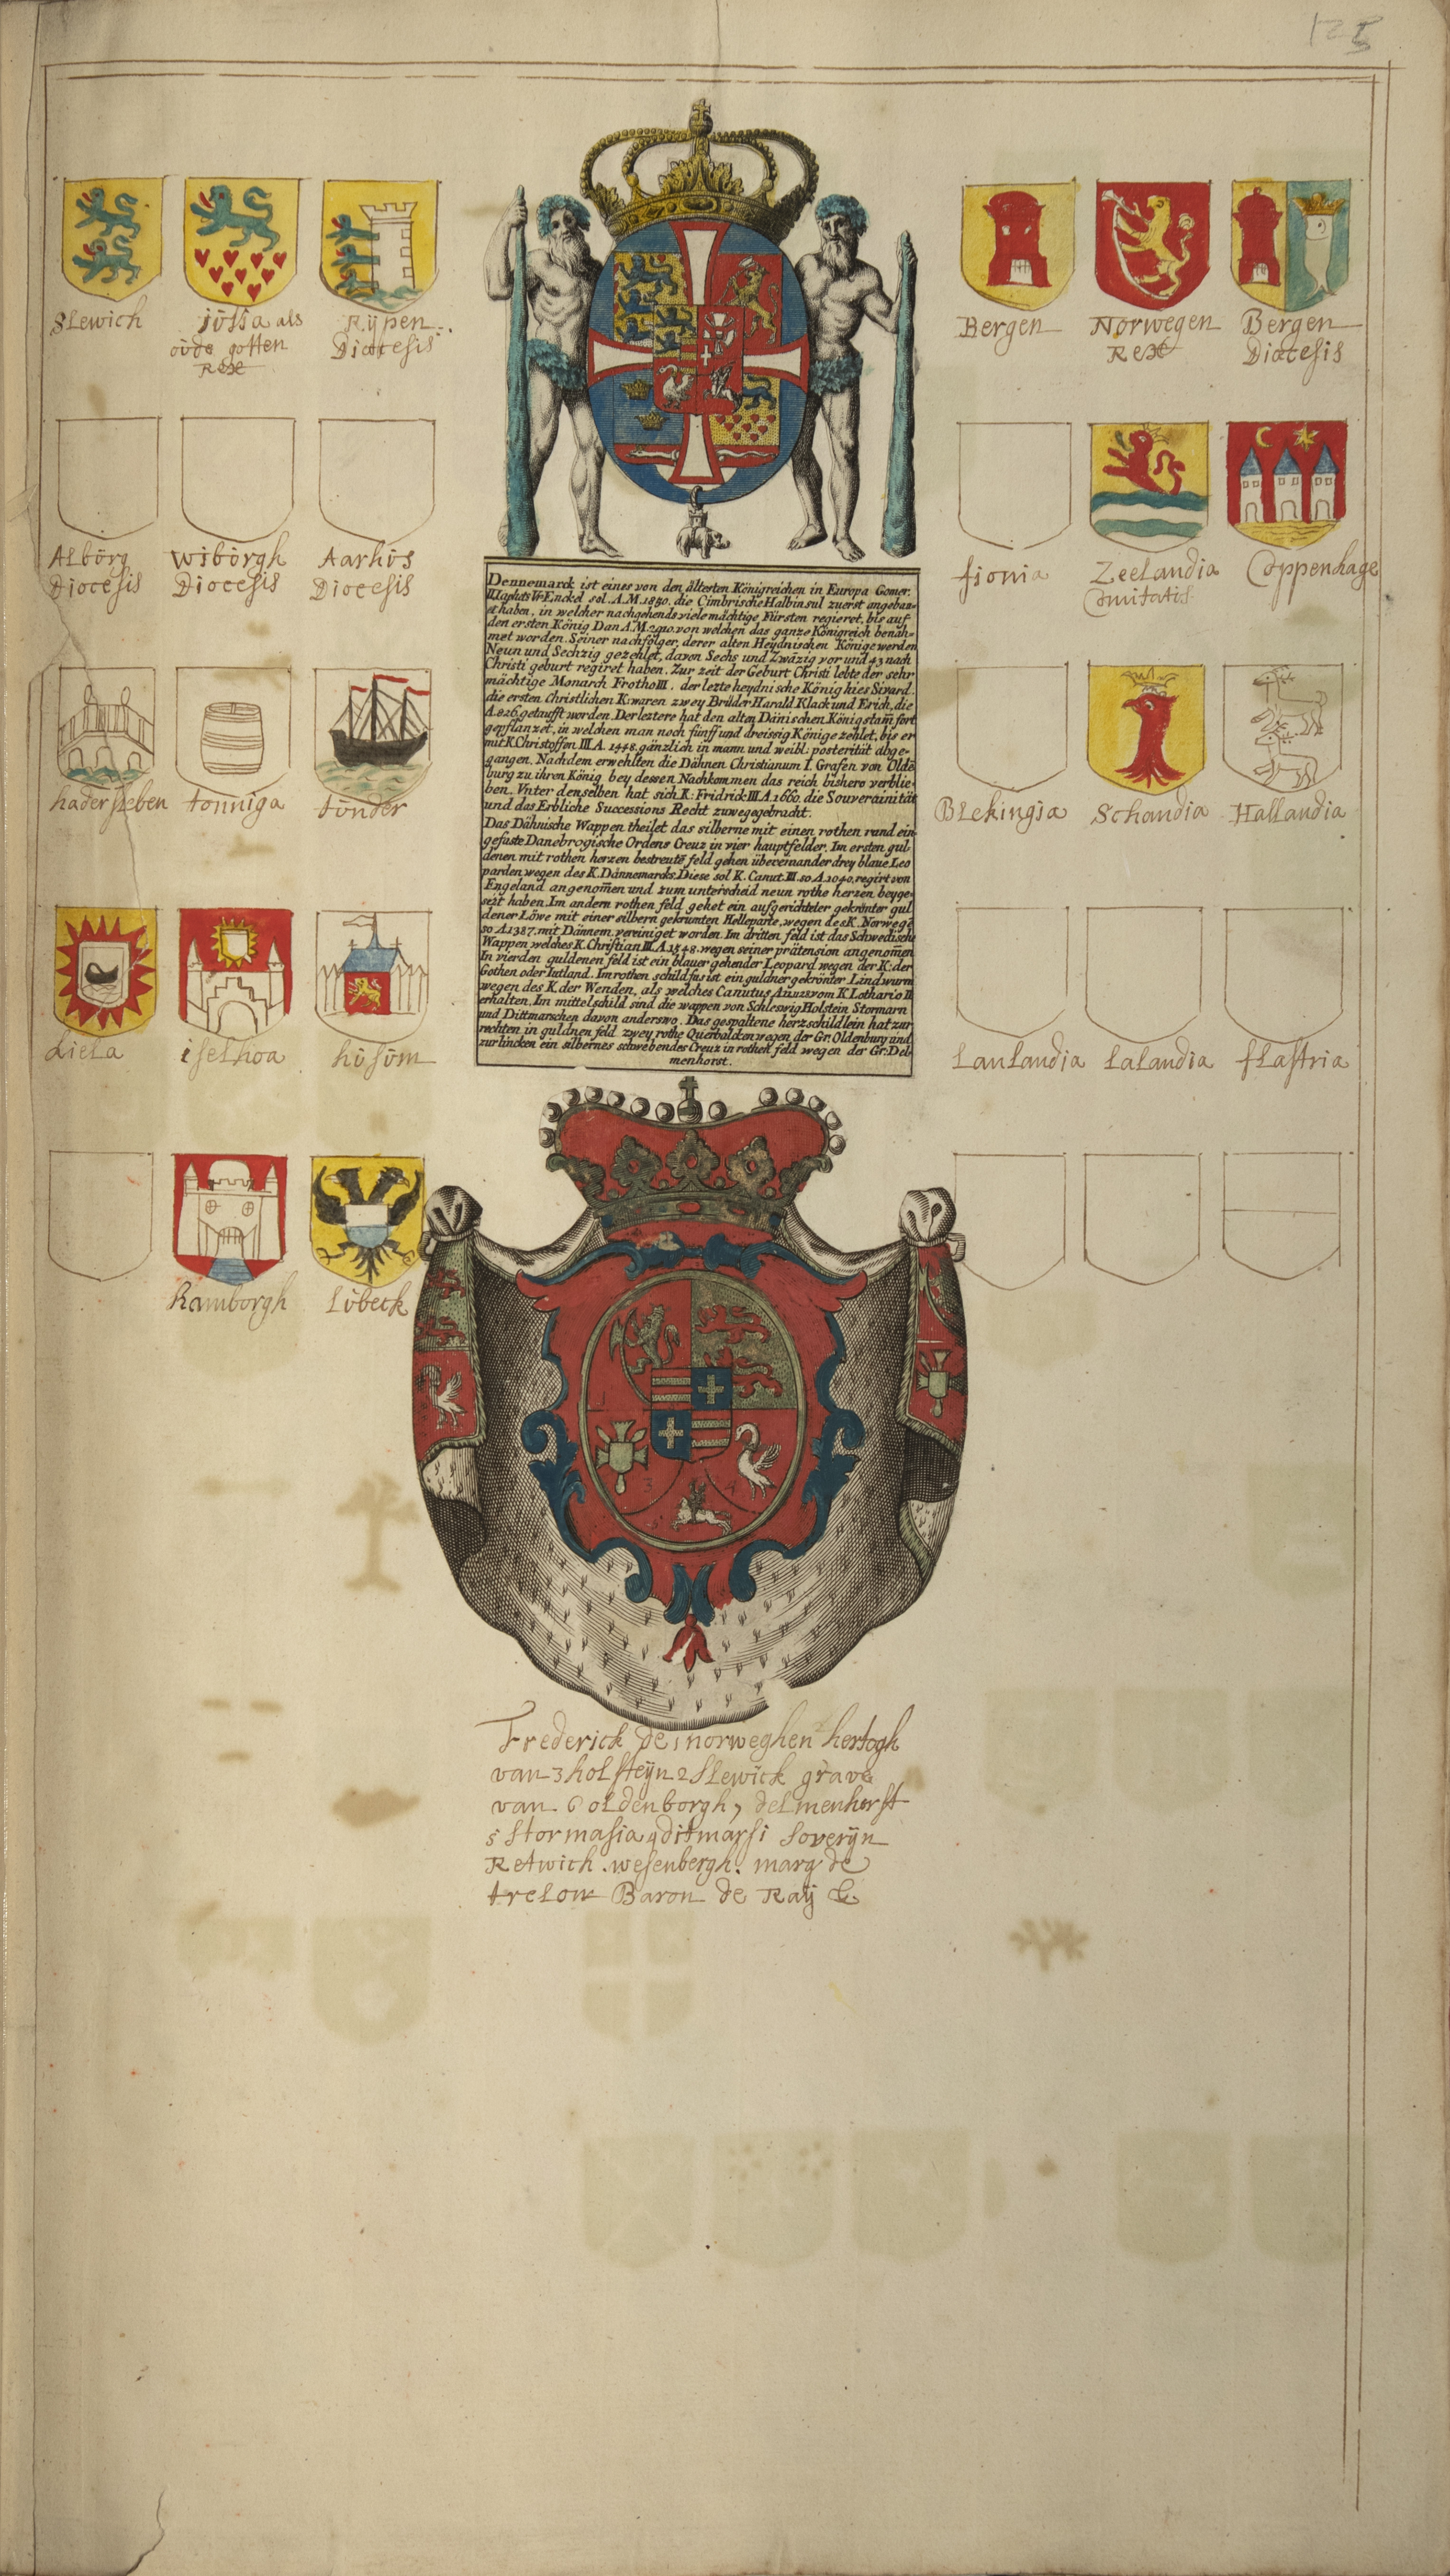 125
Slewich
jutia als
oude gotten
Rex
Rypen
Diocesis
Bergen
Norwegen
Rex
Bergen
Diocesis
Alborg
Diocesis
Wiborgh
Diocesis
Aarhus
Diocesis
fionia
Zeelandia
Comitatis
Coppenhage
hadersleben
tonniga
tunder
Blekingia
Schandia
Hallandia
kiela
iselhoa
husum
Laulandia
Lalandia
flastria
hamborgh
Lubeck
Dennemarck ist eines von den ältesten Königreichen in Europa Gomer.
die Cimbrische Halbinsul zuerst angebau-
et haben, in welcher nachgehends viele mächtige Fürsten regieret, bis auf
den ersten König Dan A.M.2910. von welchen das ganze Königreich benäh-
met worden. Seiner nachfolger, derer alten Heydnischen Könige werden
Neun und Sechzig gezehlet, davon Sechs und Zwäzig vor und 43 nach
Christi geburt regiret haben. Zur zeit der Geburt Christi lebte der sehr
mächtige Monarch Frotho III. der lezte heydnische König hies Sivard.
die ersten Christlichen K: waren zwey Brüder Harald Klack und Erich, die
A. 826. getaufft worden. Der leztere hat den alten Dänischen Königstam̄ fort
gepflanzet, in welchen man noch fünff und dreissig Könige zehlet, bis er
mit K. Christoffen III. A. 1448. gänzlich in mann und weibl: posterität abge-
gangen. Nachdem erwehlten die Dähnen Christianum I. Grafen von Olde
burg zu ihren König bey dessen Nachkommen das reich bishero verblie-
ben. Vnter denselben hat sich K: Fridrich III. A. 1660. die Souverainität
und das Erbliche Successions Recht zuwegegebracht.
Das Dähnische Wappen theilet das silberne mit einen rothen rand ein
gefaste Danebrogische Ordens Creuz in vier hauptfelder. Im ersten gul
denen mit rothen herzen bestreute feld gehen übereinander drey blaue Leo
parden wegen des K. Dännemarcks. Diese sol K. Canut. III. so A. 1040. regirt von
Engeland angenom̄en und zum unterscheid neun rothe herzen beyge-
sezt haben. Im andern rothen feld gehet ein aufgerichteter gekrönter gul
dener Löwe mit einer silbern gekrümten Helleparte, wegen des K. Norwege
so A. 1387. mit Dännem. vereiniget worden. Im dritten feld ist das Schwedische
Wappen welches K. Christian III. A. 1548. wegen seiner prätension angenom̄en
In vierden guldenen feld ist ein blauer gehender Leopard wegen der K: der
Gothen oder Iutland. Im rothen schildfus ist ein guldner gekrönter Lindwurm
wegen des K. der Wenden, als welches Canutus vom K. Lothario II
erhalten. Im mittelschild sind die wappen von Schleswig Holstein Stormarn
und Dittmarschen davon anderswo. Das gespaltene herzschildlein hat zur
rechten in guldnen feld zwey rothe Querbalcken wegen der Gr: Oldenburg und
zur lincken ein silbernes schwebendes Creuz in rothen feld wegen der Gr: Del-
menhorst.
3
4
5
Frederick de 1 norweghen hertogh
van 3 holsteyn 2 Slewick grave
van 6 oldenborgh 7 delmenhorst
5 Stormasia 4 ditmarsi Soveryn
Retwich. wesenbergh. marg de
trelow Baron de Raÿ &